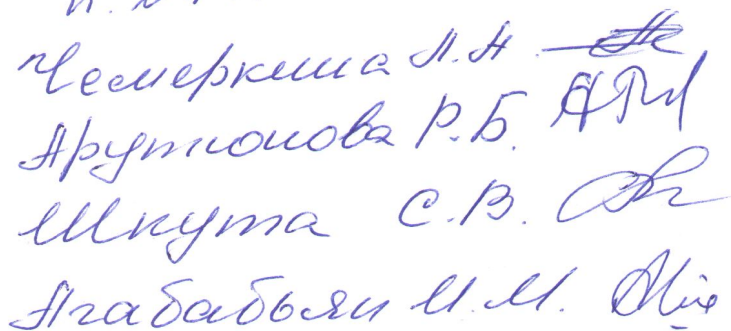 Чемеркина Л.Н.
Арутюнова Р.Б.
Шкута С.В.
Агабабьян И.М.